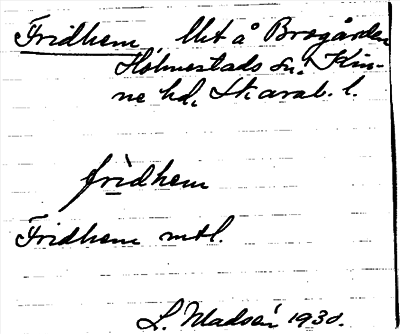 Fridhem lht å Brogården
Holmestads sn, Kin-
ne hd, Skarab. l.
frìdhem
Fridhem mtl.
1930.